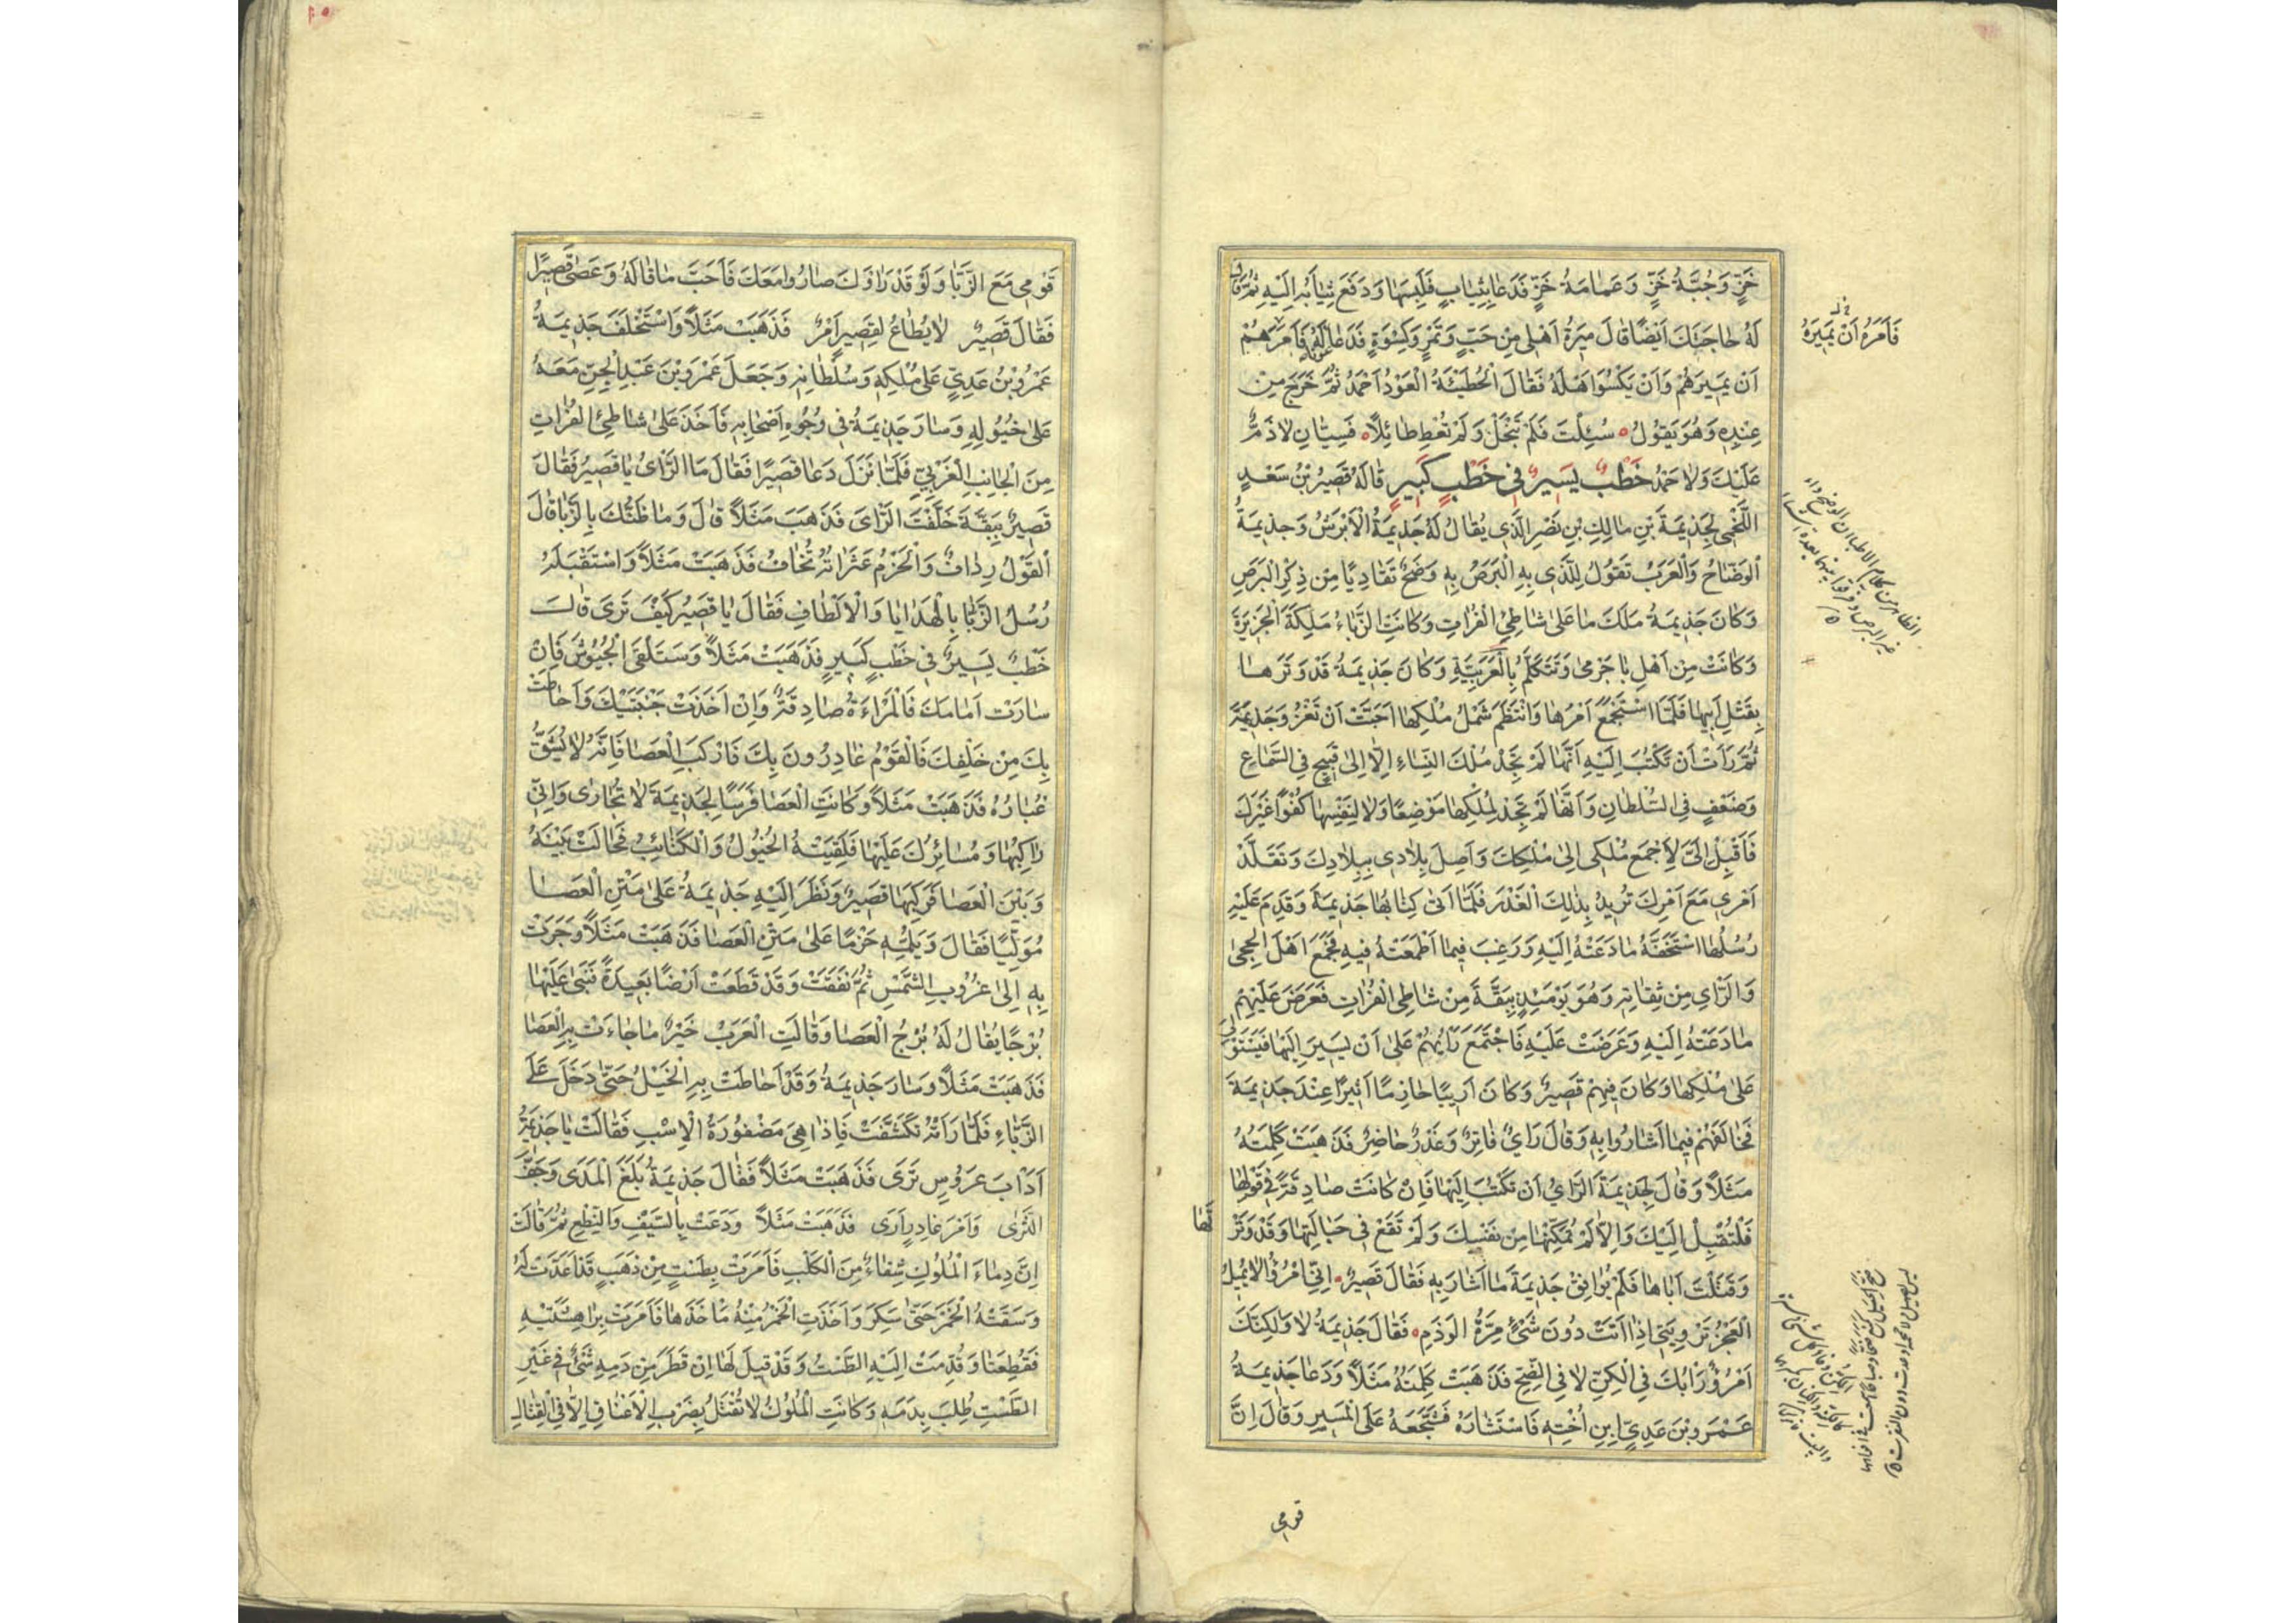 خَزٍّ وَجُبَّةُ خَزٍّ وَعَمَامَةُ خَزٍّ فَدَعَا بِثِيَابٍ فَلَبِسَهَا وَدَفَعَ ثِيَابَهُ اِلَيْهِ ثُمَّ قَالَ
لَهُ حَاجَتَكَ اَيْضًا قَالَ مِيَرةُ اَهْلِى مِنْ حَبٍّ وَتَمْرٍ وَكِسْوَةٍ فَدَعَا عَوْنًا لَهُ فَاَمَرَهُمْ
فَاَمَرَهُ اَنْ يَمِيرَهُ
اَنْ يَمِيرَهُمْ وَاَنْ يَكْسُوَ اَهْلَهُ فَقَالَ الْحُطَيْئَةُ الْعَوْدُ اَحْمَدُ ثُمَّ خَرَجَ مِنْ
عِنْدِهِ وَهُوَ يَقُولُ سُئِلْتَ فَلَمْ تَبْخَلْ وَلَمْ تُعْطِ طَائِلًا فَسِيَّانِ لَا ذَمٌّ
عَلَيْكَ وَلَا حَمْدُ خَطْبٌ يَسِيرٌ فِى خَطْبٍ كَبِيرٍ قَالَهُ قَصِيرُ بْنُ سَعْدٍ
اللَّخْمِى لِجَذِيمَةَ بْنِ مَالِكِ بْنِ نَصْرِ الَّذِى يُقَالُ لَهُ جَذِيمَةُ الْاَبْرَشُ وَجَذِيمَةُ
الْوَضَّاحُ وَالْعَرَبُ تَقُولُ لِلَّذِى بِهِ الْبَرَصُ بِهِ وَضَحٌ تَفَادِيًا مِنْ ذِكْرِ الْبَرَصِ
وَكَانَ جَذِيمَةُ مَلَكَ مَا عَلَى شَاطِئِ الْفُرَاتِ وَكَانَتِ الزَّبَّاءُ مَلِكَةَ الْجَزِيرَةِ
وَكَانَتْ مِنْ اَهْلِ بَاجَرْمَى وَتَتَكَلَّمُ بِالْعَرَبِيَّةِ وَكَانَ جَذِيمَةُ قَدْ وَتَرَهَا
بِقَتْلِ اَبِيهَا فَلَمَّا اسْتَجْمَعَ اَمْرُهَا وَانْتَظَمَ شَمْلُ مُلْكِهَا اَحَبَّتْ اَنْ تَغْزُوَ جَذِيمَةَ
ثُمَّ رَاَتْ اَنْ تَكْتُبَ اِلَيْهِ اَنَّهَا لَمْ تَجِدْ مُلْكَ النِّسَاءِ اِلَّا اِلَى قَبِيحٍ فِى السَّمَاعِ
وَضَعْفٍ فِى السُّلْطَانِ وَاَنَّهَا لَمْ تَجِدْ لِمُلْكِهَا مَوْضِعًا وَلَا لِنَفْسِهَا كُفْوًا غَيْرَكَ
فَاَقْبِلْ اِلَىَّ لِاَجْمَعَ مُلْكِى اِلَى مُلْكِكَ وَاَصِلَ بِلَادِى بِبِلَادِكَ وَتَقَلَّدْ
اَمْرِى مَعَ اَمْرِكَ تُرِيدُ بِذٰلِكَ الْغَدْرَ فَلَمَّا اَتَى كِتَابُهَا جَذِيمَةَ وَقَدِمَ عَلَيْهِ
رُسُلُهَا اسْتَخَفَّهُ مَا دَعَتْهُ اِلَيْهِ وَرَغِبَ فِيمَا اَطْمَعَتْهُ فِيهِ فَجَمَعَ اَهْلَ الْحِجَى
وَالرَّاىِ مِنْ ثِقَاتِهِ وَهُوَ يَوْمَئِذٍ بِبَقَّةَ مِنْ شَاطِئِ الْفُرَاتِ فَعَرَضَ عَلَيْهِمْ
مَا دَعَتْهُ اِلَيْهِ وَعَرَضَتْ عَلَيْهِ فَاجْتَمَعَ رَأْيُهُمْ عَلَى اَنْ يَسِيرَ اِلَيْهَا فَيَسْتَوْلِىَ
عَلَى مُلْكِهَا وَكَانَ فِيهِمْ قَصِيرٌ وَكَانَ اَرِيبًا حَازِمًا اَثِيرًا عِنْدَ جَذِيمَةَ
فَخَالَفَهُمْ فِيمَا اَشَارُوا بِهِ وَقَالَ رَاىٌ فَاتِرٌ وَغَدْرٌ حَاضِرٌ فَذَهَبَتْ كَلِمَتُهُ
مَثَلًا وَقَالَ لِجَذِيمَةَ الرَّاىُ اَنْ تَكْتُبَ اِلَيْهَا فَاِنْ كَانَتْ صَادِقَةً فِى قَوْلِهَا
فَلْتُقْبِلْ اِلَيْكَ وَاِلَّا لَمْ تُمَكِّنْهَا مِنْ نَفْسِكَ وَلَمْ تَقَعْ فِى حَبَالَتِهَا وَقَدْ وَتَرْتَهَا
وَقَتَلْتَ اَبَاهَا فَلَمْ يُوَافِقْ جَذِيمَةَ مَا اَشَارَ بِهِ فَقَالَ قَصِيرٌ اِنِّى امْرُؤٌ لَا يُمِيلُ
الْعَجْزُ تَرْوِيَتِى اِذَا اَتَتْ دُونَ شَىْءٍ مِرَّةُ الْوَذَمِ فَقَالَ جَذِيمَةُ لَا وَلَكِنَّكَ
اَمْرُؤٌ رَاْيُكَ فِى الْكِنِّ لَا فِى الضِّحِّ فَذَهَبَتْ كَلِمَتُهُ مَثَلًا وَدَعَا جَذِيمَةُ
عَمْرَو بْنَ عَدِىٍّ ابْنِ اُخْتِهِ فَاسْتَشَارَهُ فَشَجَّعَهُ عَلَى الْمَسِيرِ وَقَالَ اِنَّ
قومى
قَوْمِى مَعَ الزَّبَّا وَلَوْ قَدْ رَاَوْكَ صَارُوا مَعَكَ فَاَحَبَّ مَا قَالَهُ وَعَصَى قَصِيرًا
فَقَالَ قَصِيرٌ لَا يُطَاعُ لِقَصِيرٍ اَمْرٌ فَذَهَبَتْ مَثَلًا وَاسْتَخْلَفَ جَذِيمَةُ
عَمْرَو بْنَ عَدِىٍّ عَلَى مُلْكِهِ وَسُلْطَانِهِ وَجَعَلَ عَمْرَو بْنَ عَبْدِ الْجِنِّ مَعَهُ
عَلَى خُيُولِهِ وَسَارَ جَذِيمَةُ فِى وُجُوهِ اَصْحَابِهِ فَاَخَذَ عَلَى شَاطِئِ الْفُرَاتِ
مِنَ الْجَانِبِ الْغَرْبِىِّ فَلَمَّا نَزَلَ دَعَا قَصِيرًا فَقَالَ مَا الرَّاىُ يَا قَصِيرُ فَقَالَ
قَصِيرٌ بِبَقَّةَ خَلَّفْتَ الرَّاىَ فَذَهَبَ مَثَلًا قَالَ وَمَا ظَنُّكَ بِالزَّبَّا قَالَ
الْقَوْلُ رِدَافٌ وَالْحَزْمُ عَثَرَاتُهُ تُخَافُ فَذَهَبَتْ مَثَلًا وَاسْتَقْبَلَهُ
رُسُلُ الزَّبَّا بِالْهَدَايَا وَالْاَلْطَافِ فَقَالَ يَا قَصِيرُ كَيْفَ تَرَى قَالَ
خَطْبٌ يَسِيرٌ فِى خَطْبٍ كَبِيرٍ فَذَهَبَتْ مَثَلًا وَسَتَلْقَى الْجُيُوشَ فَاِنْ
سَارَتْ اَمَامَكَ فَالْمَرْاَةُ صَادِقَةٌ وَاِنْ اَخَذَتْ جَنْبَتَيْكَ وَاَحَاطَتْ
بِكَ مِنْ خَلْفِكَ فَالْقَوْمُ غَادِرُونَ بِكَ فَارْكَبِ الْعَصَا فَاِنَّهُ لَا يُشَقُّ
غُبَارُهُ فَذَهَبَتْ مَثَلًا وَكَانَتِ الْعَصَا فَرَسًا لِجَذِيمَةَ لَا تُجَارَى وَاِنِّى
رَاكِبُهَا وَمُسَائِرُكَ عَلَيْهَا فَلَقِيَتْهُ الْخُيُولُ وَالْكَتَائِبُ فَحَالَتْ بَيْنَهُ
وَبَيْنَ الْعَصَا فَرَكِبَهَا قَصِيرٌ وَنَظَرَ اِلَيْهِ جَذِيمَةُ عَلَى مَتْنِ الْعَصَا
مُوَلِّيًا فَقَالَ وَيْلُمِّهِ حَزْمًا عَلَى مَتْنِ الْعَصَا فَذَهَبَتْ مَثَلًا وَجَرَتْ
بِهِ اِلَى غُرُوبِ الشَّمْسِ ثُمَّ نَفَقَتْ وَقَدْ قَطَعَتْ اَرْضًا بَعِيدَةً فَبَنَى عَلَيْهَا
بُرْجًا يُقَالُ لَهُ بُرْجُ الْعَصَا وَقَالَتِ الْعَرَبُ خَيْرٌ مَا جَاءَتْ بِهِ الْعَصَا
فَذَهَبَتْ مَثَلًا وَسَارَ جَذِيمَةُ وَقَدْ اَحَاطَتْ بِهِ الْخَيْلُ حَتَّى دَخَلَ عَلَى
الزَّبَّاءِ فَلَمَّا رَاَتْهُ تَكَشَّفَتْ فَاِذَا هِىَ مَضْفُورَةُ الْاِسْبِ فَقَالَتْ يَا جَذِيمَةُ
اَدَاْبَ عَرُوسٍ تَرَى فَذَهَبَتْ مَثَلًا فَقَالَ جَذِيمَةُ بَلَغَ الْمَدَى وَجَفَّ
الثَّرَى وَاَمْرَ غَادِرٍ اَرَى فَذَهَبَتْ مَثَلًا وَدَعَتْ بِالسَّيْفِ وَالنِّطْعِ ثُمَّ قَالَتْ
اِنَّ دِمَاءَ الْمُلُوكِ شِفَاءٌ مِنَ الْكَلَبِ فَاَمَرَتْ بِطَسْتٍ مِنْ ذَهَبٍ قَدْ اَعَدَّتْ لَهُ
وَسَقَتْهُ الْخَمْرَ حَتَّى سَكِرَ وَاَخَذَتِ الْخَمْرُ مِنْهُ مَاْخَذَهَا فَاَمَرَتْ بِرَاهِشَيْهِ
فَقُطِعَتَا وَقُدِّمَتْ اِلَيْهِ الطَّسْتُ وَقَدْ قِيلَ لَهَا اِنْ قَطَرَ مِنْ دَمِهِ شَىْءٌ فِى غَيْرِ
الطَّسْتِ طُلِبَ بِدَمِهِ وَكَانَتِ الْمُلُوكُ لَا تُقْتَلُ بِضَرْبِ الْاَعْنَاقِ اِلَّا فِى الْقِتَالِ